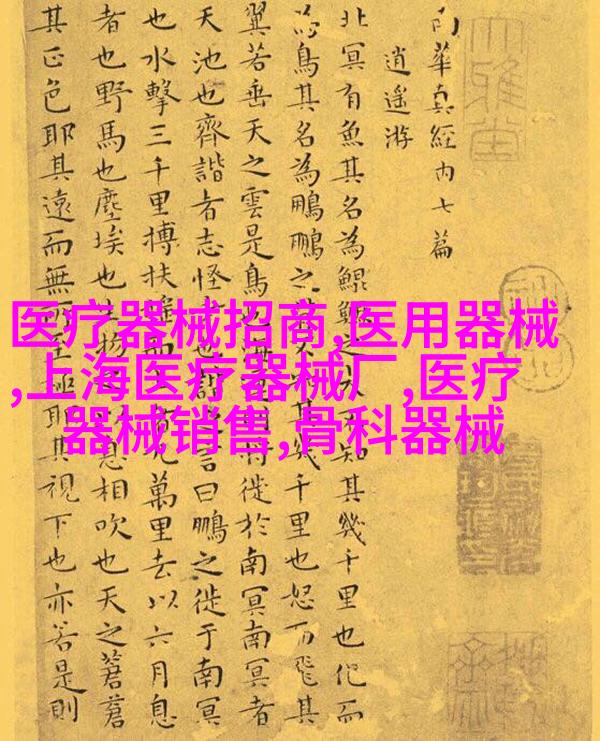 南華真經内七篇
逍遥游
北冥有魚其名為鯤鯤之大不知其幾千里也化而
為鳥其名為鵬鵬之背不知其幾千里也怒而飛其
翼若垂天之雲是鳥也海運則將徙於南冥南冥者
天池也齊諧者志怪者也諧之言曰鵬之徙于南冥
也水擊三千里搏扶摇而上者九萬里去以六月息
者也野馬也塵埃也生物之以息相吹也天之蒼蒼
其正色耶其遠而無所至極耶其視下也亦若是則
医疗器械招商,医用器械
,上海医疗器械厂,医疗
器械销售,骨科器械